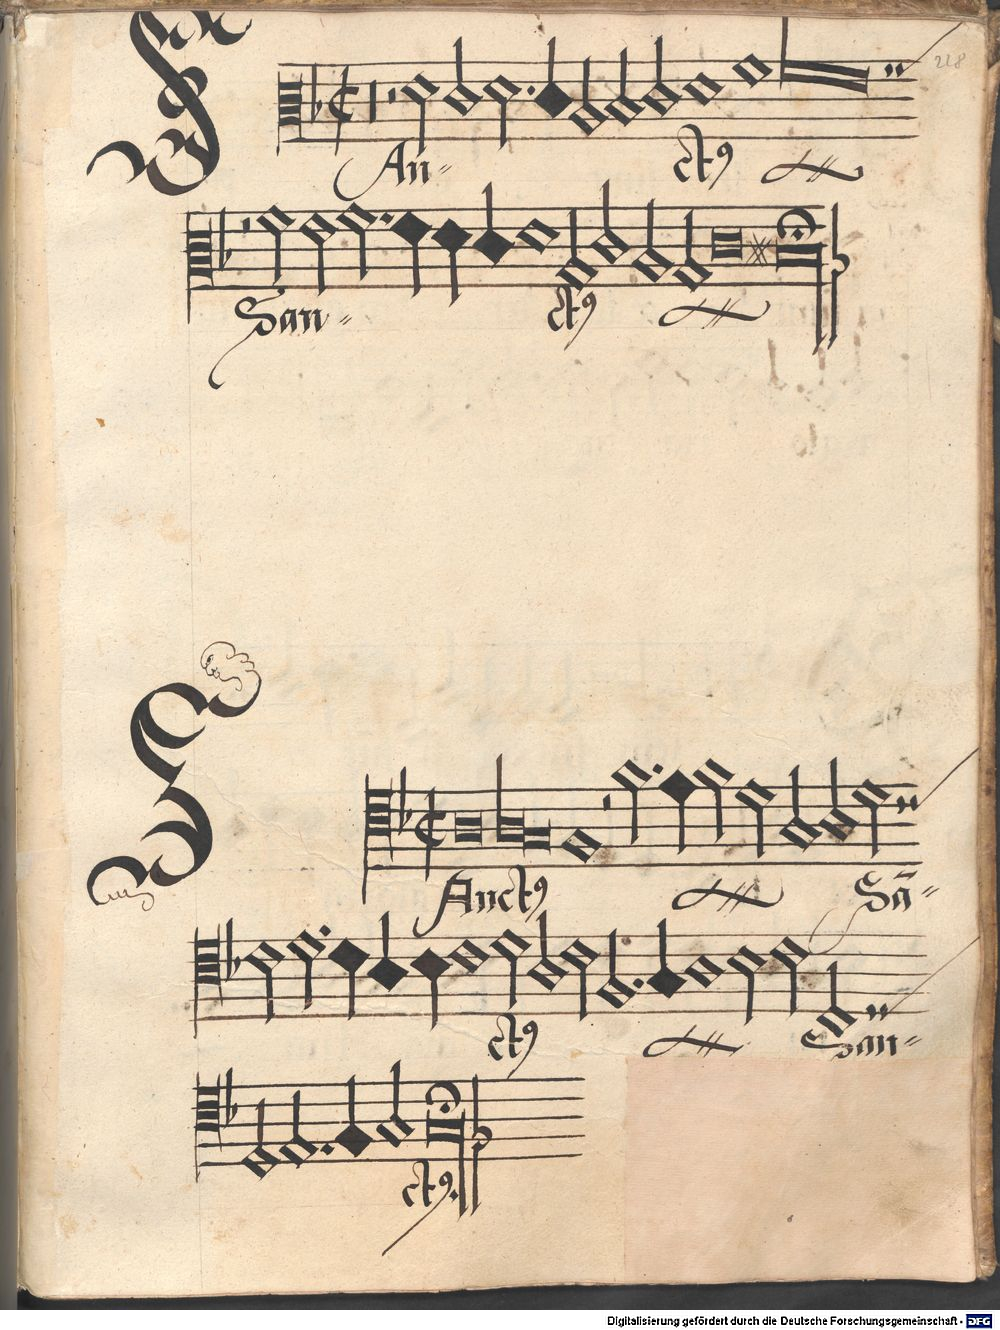 218
SAn= ctꝰ
San= ctꝰ
SAnctꝰ Sã=
ctꝰ San=
ctꝰ.
Digitalisierung gefördert durch die Deutsche Forschungsgemeinschaft - DFG